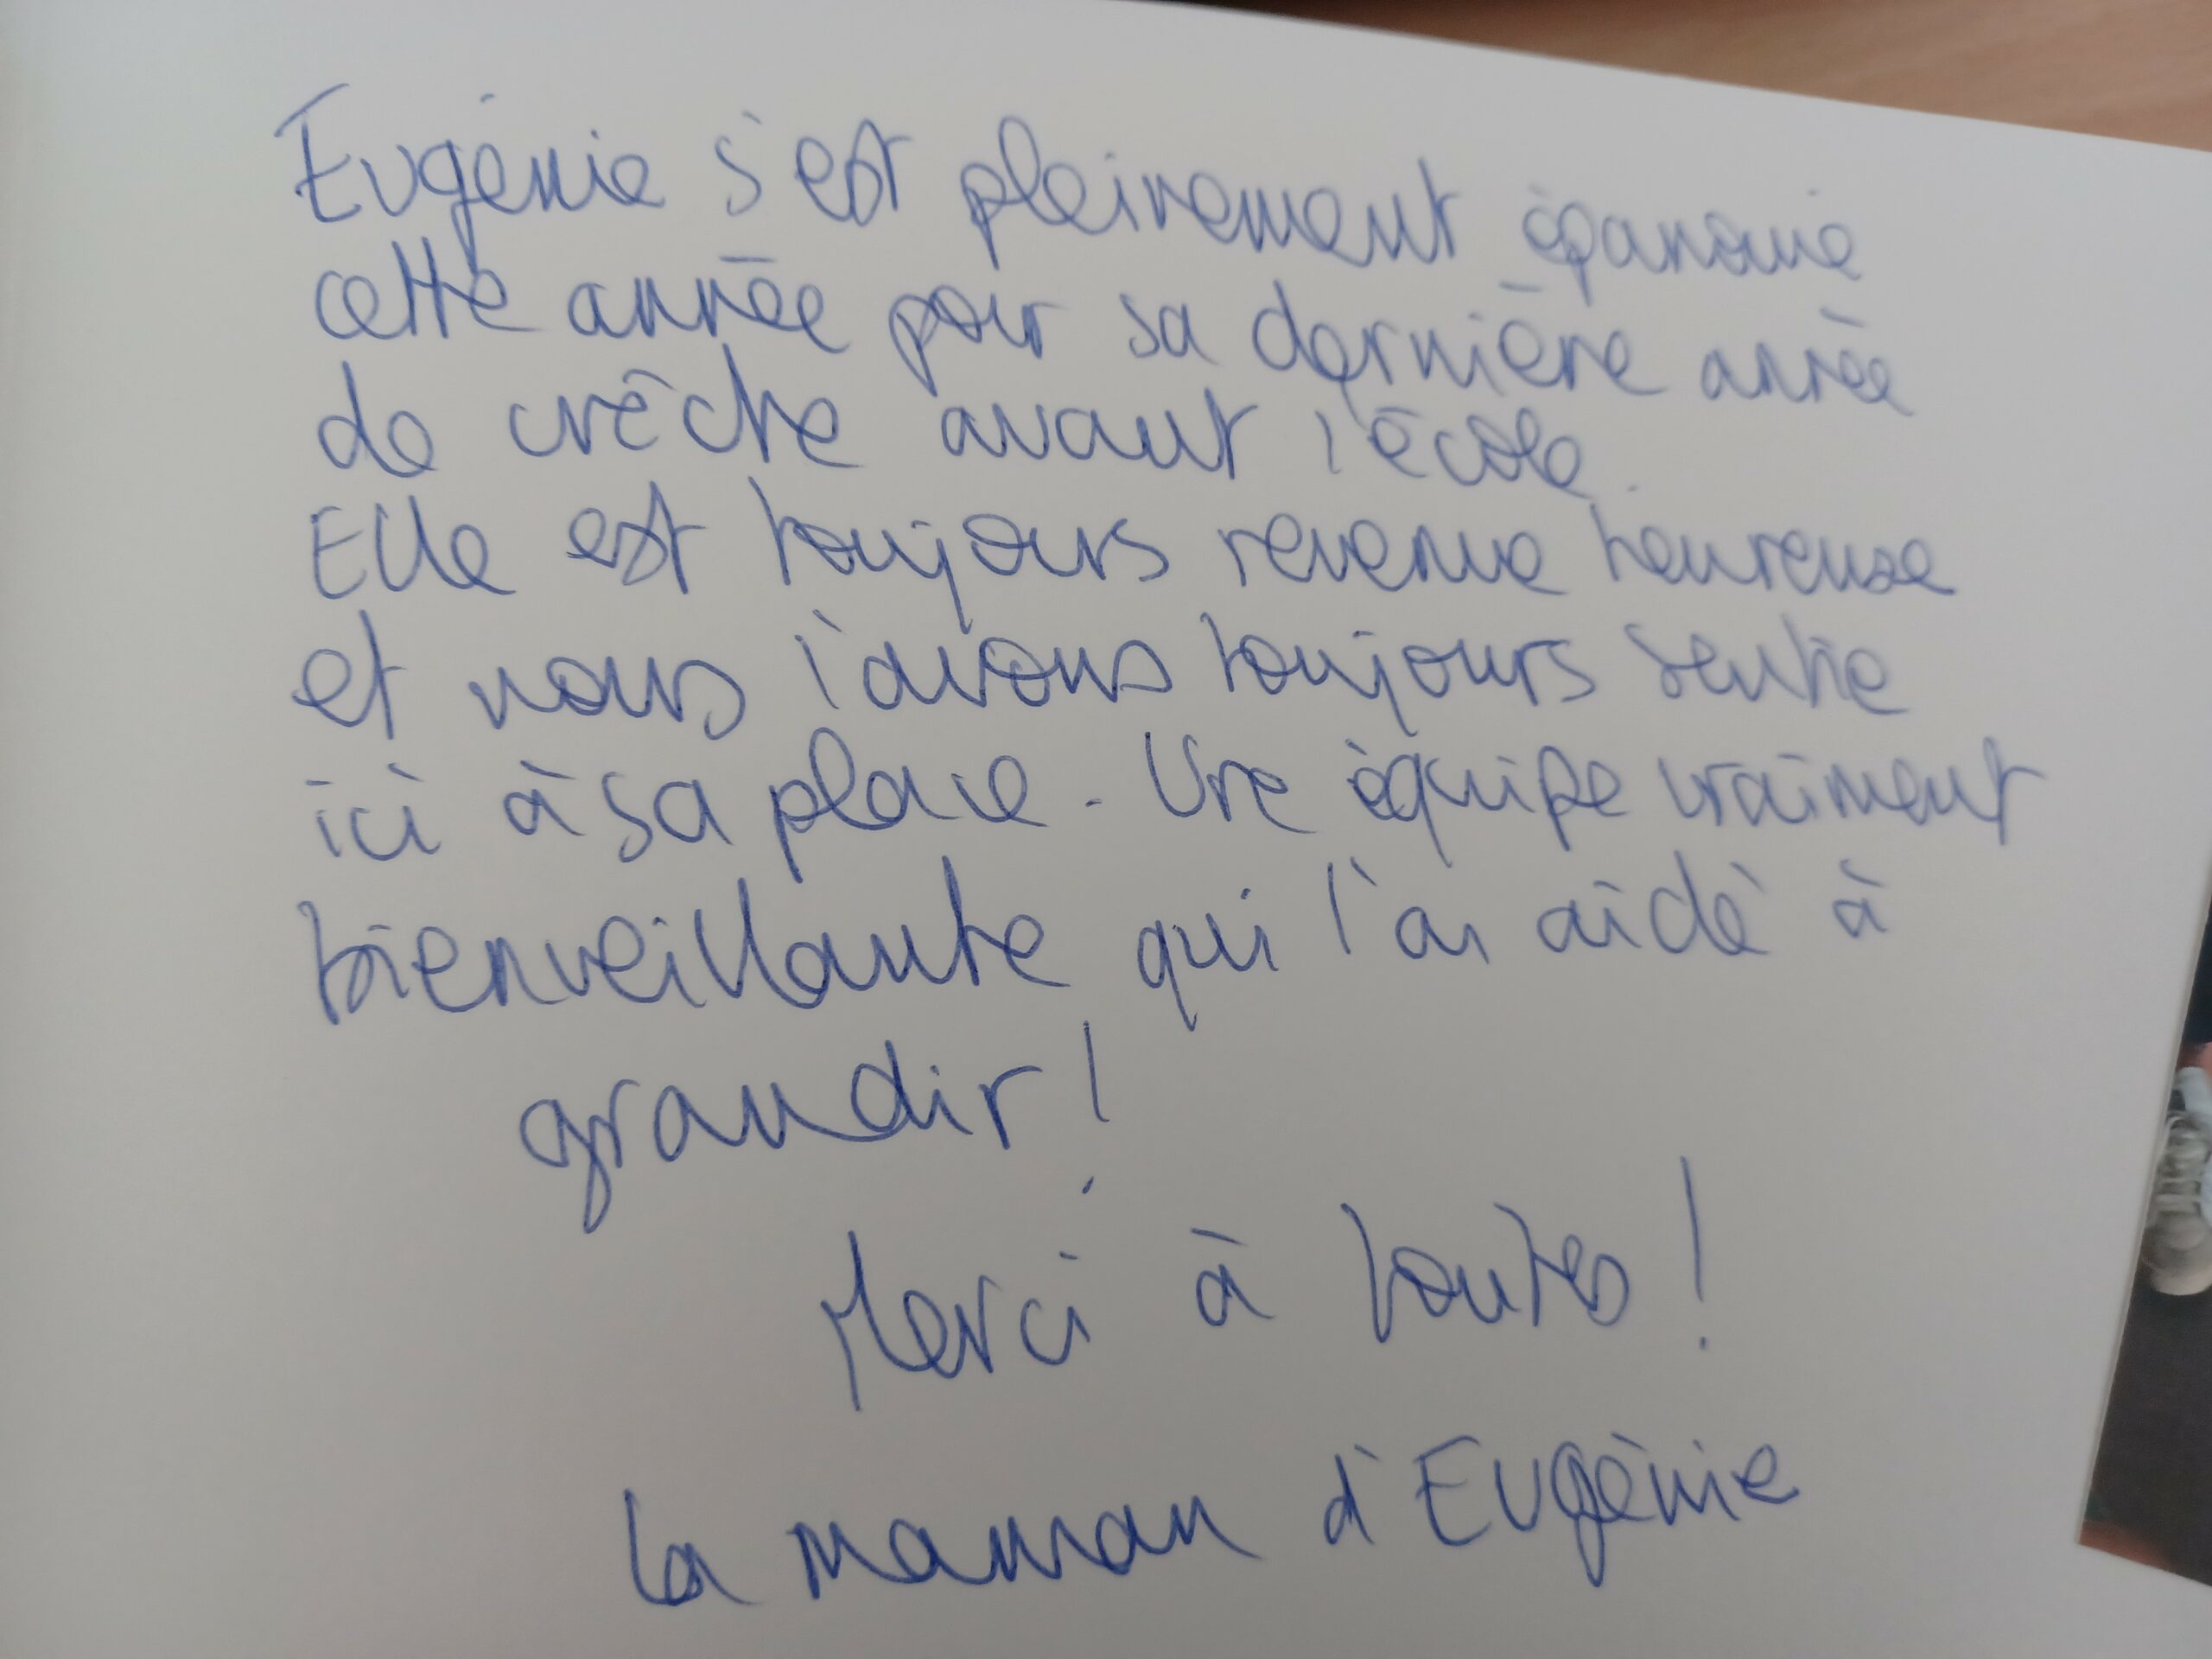 Eugénie s'est pleinement épanouie
cette année pour sa dernière année
de crèche avant l'école.
Elle est toujours revenue heureuse
et nous l'avons toujours sentie
ici à sa place. Une équipe vraiment
bienveillante qui l'a aidé à
grandir !
Merci à toutes !
la maman d'Eugénie